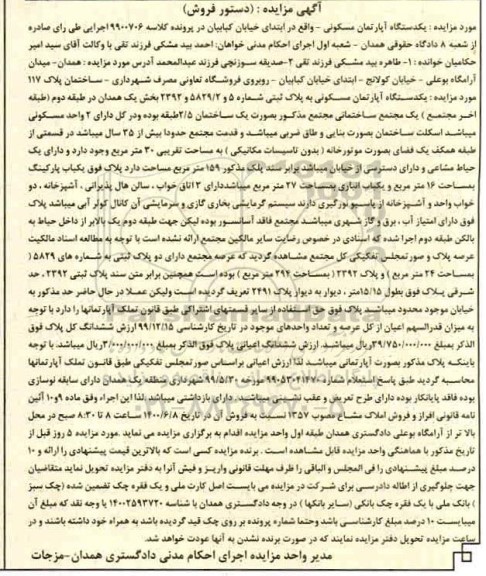 آگهی مزایده : (دستور فروش)
مورد مزایده : یکدستگاه آپارتمان مسکونی - واقع در ابتدای خیابان کبابیان در پرونده کلاسه ۹۹۰۰۷۰۶ اجرایی طی رای صادره
از شعبه ۸ دادگاه حقوقی همدان - شعبه اول اجرای احکام مدنی خواهان: احمد بید مشکی فرزند تقی با وکالت آقای سید امیر
حکامیان خوانده : ۱- طاهره بید مشکی فرزند تقی ۲-صدیقه سوزنچی فرزند عبدالمحمد آدرس مورد مزایده : همدان - میدان
آرامگاه بوعلی - خیابان کولانج - ابتدای خیابان کبابیان - روبروی فروشگاه تعاونی مصرف شهرداری - ساختمان پلاک ۱۱۷
مورد مزایده : یکدستگاه آپارتمان مسکونی به پلاک ثبتی شماره ۵ و ۵۸۲۹/۲ و ۲۳۹۲ بخش یک همدان در طبقه دوم (طبقه
آخر مجتمع) یک مجتمع ساختمانی مجتمع مذکور بصورت یک ساختمان ۲/۵طبقه بوده ودر کل دارای ۲ واحد مسکونی
میباشد اسکلت ساختمان بصورت بنایی و طاق ضربی میباشد و قدمت مجتمع حدودا بیش از ۳۵ سال میباشد در قسمتی از
طبقه همکف یک فضای بصورت موتورخانه ( بدون تاسیسات مکانیکی ) به مساحت تقریبی ۳۰ متر مربع وجود دارد و دارای یک
حیاط مشاعی و دارای دسترسی از خیابان میباشد برابر سند پلاک مذکور ۱۵۹ متر مربع مساحت دارد پلاک فوق یکباب پارکینگ
بمساحت ۱۶ متر مربع و یکباب انباری بمساحت ۲۷ متر مربع میباشددارای ۳ اتاق خواب ، سالن هال پذیرائی ، آشپزخانه ، دو
خواب واحد و آشپزخانه از پاسیو نورگیری دارند سیستم گرمایشی بخاری گازی و سرمایشی آن کانال کولر آبی میباشد پلاک
فوق دارای امتیاز آب ، برق و گاز شهری میباشد مجتمع فاقد آسانسور بوده لیکن جهت طبقه دوم یک بالابر از داخل حیاط به
بالکن طبقه دوم اجرا شده که اسنادی در خصوص رضایت سایر مالکین مجتمع ارائه نشده است با توجه به مطالعه اسناد مالکیت
عرصه پلاک و صورتمجلس تفکیکی کل مجتمع مشاهده گردید که عرصه مجتمع دارای دو پلاک ثبتی به شماره های ۵۸۲۹ (
بمساحت ۲۴ متر مربع ) و پلاک ۲۳۹۲ ( بمساحت ۲۹۴ متر مربع ) بوده است همچنین برابر متن سند پلاک ثبتی ۲۳۹۲ ، حد
شرقی پلاک فوق بطول ۱۵/۱۵متر ، دیوار به دیوار پلاک ۲۴۹۱ تعریف گردیده است ولیکن عملا در حال حاضر حد مذکور به
خیابان موجود محدود میباشد پلاک فوق حق استفاده از سایر قسمتهای اشتراکی طبق قانون تملک آپارتمانها را دارد با توجه
به میزان قدرالسهم اعیان از کل عرصه و تعداد واحدهای موجود در تاریخ کارشناسی ۹۹/۱۲/۱۵ ارزش ششدانگ کل پلاک فوق
الذکر بمبلغ ۲۹/۷۵۰/۰۰۰/۰۰۰ریال میباشد. ارزش ششدانگ اعیانی پلاک فوق الذکر بمبلغ ۳/۰۰۰/۰۰۰/۰۰۰ریال میباشد. با توجه
باینکه پلاک مذکور بصورت آپارتمانی میباشد لذا ارزش اعیانی براساس صورتمجلس تفکیکی طبق قانون تملک آپارتمانها
محاسبه گردید طبق پاسخ استعلام شماره مورخ ۹۹/۵/۳۰ شهرداری منطقه یک همدان دارای سابقه نوسازی
بوده فاقد پایانکار بوده دارای طرح تعریض و عقب نشینی میباشد. دارای بازداشتی میباشد لذا این اجراء وفق ماده ۹و۱۰ آئین
نامه قانونی افراز و فروش املاک مشاع مصوب ۱۳۵۷ نسبت به فروش آن در تاریخ ۱۴۰۰/۶/۸ ساعت ۸ تا ۸:۳۰ صبح در محل
بالا تر از آرامگاه بوعلی دادگستری همدان طبقه اول واحد مزایده اقدام به برگزاری مزایده می نماید .مورد مزایده ۵ روز قبل از
تاریخ مذکور با هماهنگی واحد مزایده قابل مشاهده است . برنده مزایده کسی است که بالاترین قیمت پیشنهادی را ارائه و ۱۰
درصد مبلغ پیشنهادی را فی المجلس و الباقی را ظرف مهلت قانونی واریز و فیش آنرا به دفتر مزایده تحویل نماید متقاضیان
جهت جلوگیری از اطاله دادرسی برای شرکت در مزایده می بایست اصل کارت ملی و یک فقره چک تضمین شده (چک سبز
) بانک ملی با یک فقره چک بانکی (سایر بانکها ) در وجه دادگستری همدان با شناسه ۱۴۰۰۲۵۹۳۷۲۰ یا وجه نقد که مبلغ آن
میبایست ۱۰ درصد مبلغ کارشناسی باشد وحتما شماره پرونده بر روی چک قید گردیده باشد به همراه خود داشته باشند و در
ساعت مزایده تحویل دفتر مزایده نمایند که در صورت برنده نشدن به آنها عودت خواهد شد.
مدیر واحد مزایده اجرای احکام مدنی دادگستری همدان-مزجات